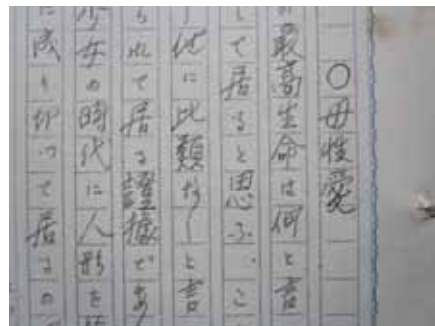 ○母性愛
最高生命は何と言
して居ると思ふ、こ
他に比類なしと言
れて居る證據であ
少女の時代に人形を
に成り切つて居るの